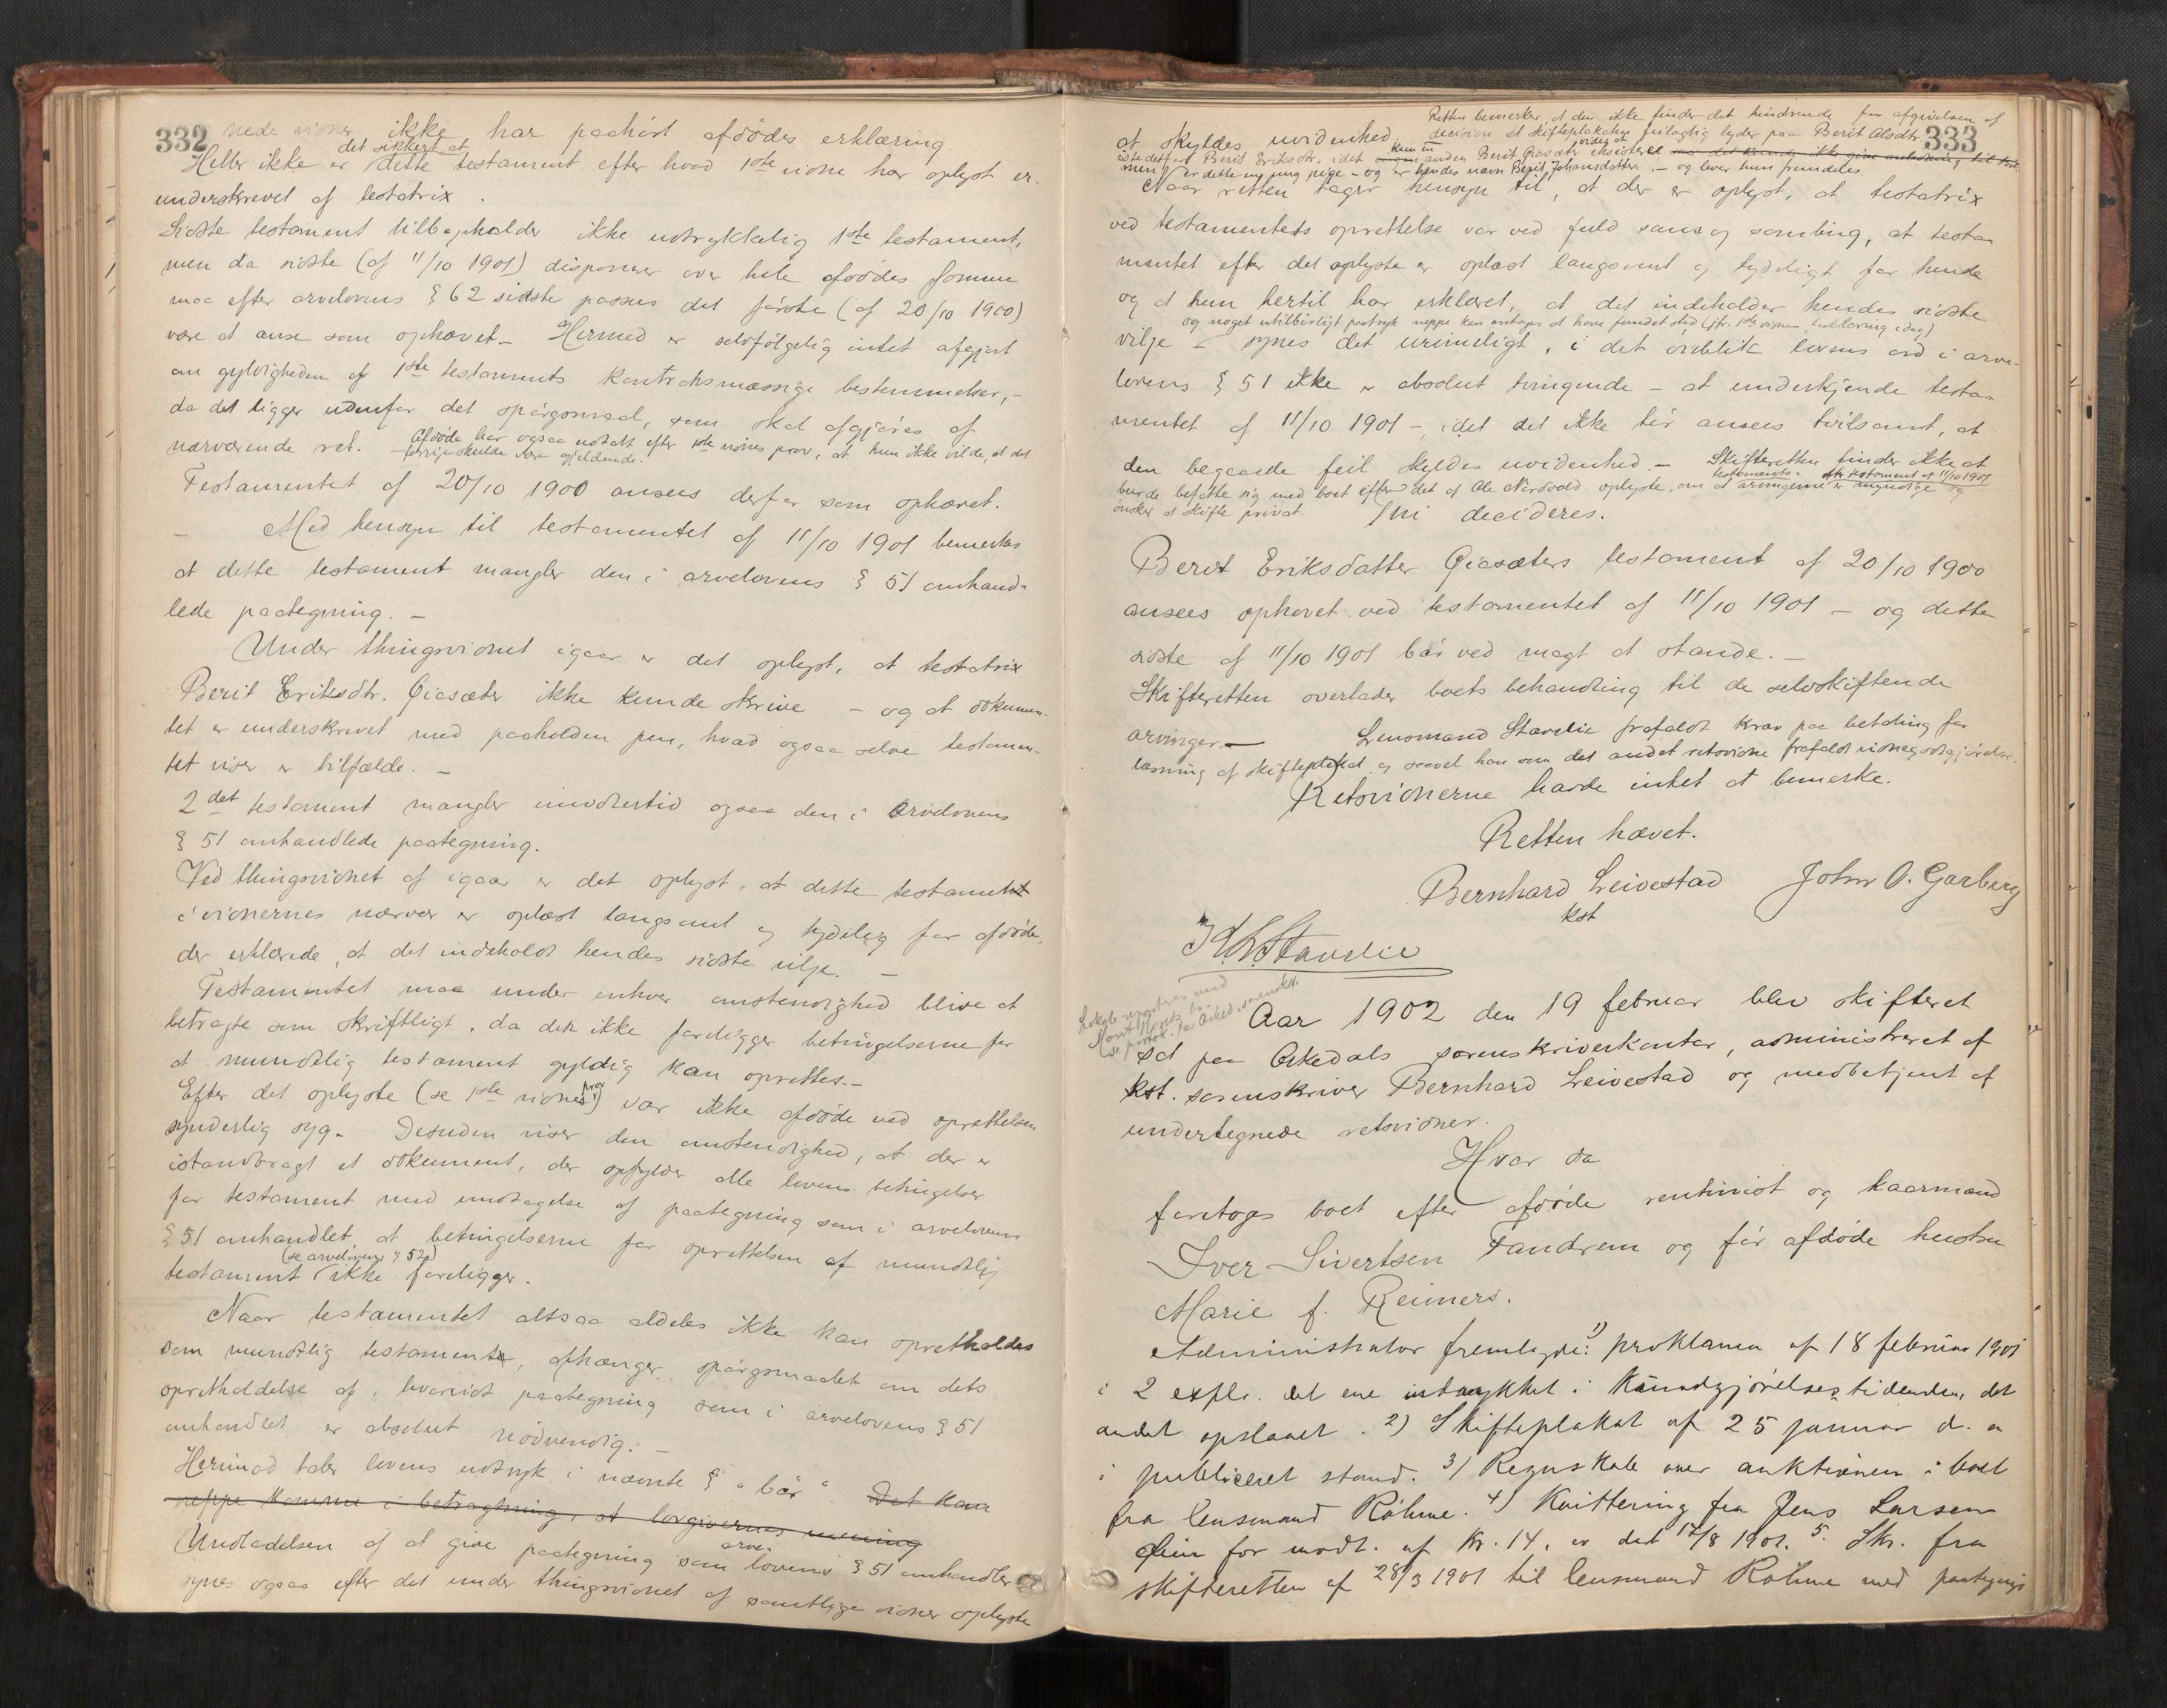 332
nede vidner ikke har paahørt afdødes erklæring.
det sikkert at
Heller ikke er dette testament efter hvad 1ste vidne har oplyst er
underskrevet af testatrix.
Sidste testament tilbagekalder ikke udtrykkelig 1ste testament,
men da sidste (af 11/10 1901) disponerer over hele afdødes formue
maa efter arvelovens § 62 sidste passus det første (af 20/10 1900)
være at anse som ophævet. Hermed er selvfølgelig intet afgjort
om gyldigheden af 1ste testaments kontraktsmæssige bestemmelser, -
da det ligger udenfor det spørgsmaal, som skal afgjøres af
nærværende ret. Afdøde har ogsaa udtalt efter 1ste vidnes prov, at hun ikke vilde, at det
førrige skulde være gjældende.
Testamentet af 20/10 1900 ansees derfor som ophævet.
- Med hensyn til testamentet af 11/10 1901 bemerkes
at dette testament mangler den i arvelovens § 51 omhand-
lede paategning. -
Under thingsvidnet igaar er det oplyst, at testatrix
Berit Eriksdtr. Gjasæter ikke kunde skrive - og at dokumen-
tet er underskrevet med paaholden pen, hvad ogsaa selve testamen-
tet viser er tilfælde. -
2det testament mangler imidlertid ogsaa den i arvelovens
§ 51 omhandlede paategning.
Ved thingsvidnet af igaar er det oplyst, at dette testament
i vidnernes nærvær er oplæst langsomt og tydelig for afdøde,
der erklærede, at det indeholdt hendes sidste vilje. -
Testamentet maa under enhver omstendighed blive at
betragte som skriftligt, da der ikke foreligger betingelserne for
at mundtlig testament gyldig kan oprettes. -
Efter det oplyste (se 1ste vidnes prov) var ikke afdøde ved oprettelsen
synderlig syg. Desuden viser den omstendighed, at der er
istandbragt et dokument, der opfylder alle lovens betingelser
for testament med undtagelse af paategning som i arvelovens
§ 51 omhandlet, at betingelserne for oprettelsen af mundtlig
(se arvelovens § 52)
testament ikke foreligger.
Naar testamentet altsaa aldeles ikke kan opretholdes
som mundtlig testament, afhænger spørgsmaalet om dets
opretholdelse af, hvorvidt paategning som i arvelovens § 51
omhandlet er absolut nødvendig. -
Herimod taler lovens udtryk i nævnte § "bør". Det kan
neppe komme i betragtning, at lovgivernes mening
Undladelsen af at give paategning som arvelovens § 51 omhandler
synes ogsaa efter det under thingsvidnet af samtlige vidner oplyste
333
at skyldes uvidenhed. Retten bemerker, at den ikke finder det hindrende for afgivelsen af
decision at skifteplakaten feilagtig lyder paa Berit Olsdtr.
istedetfor Berit Eriksdtr., idet kun en anden Berit Gjasæter eksisterer
men er dette en ung pige - og er hendes navn Berit Johansdatter, - og lever hun fremdeles.
Naar retten tager hensyn til, at der er oplyst, at testatrix
ved testamentets oprettelse var ved fuld sans og samling, at testa-
mentet efter det oplyste er oplæst langsomt og tydeligt for hende
og at hun hertil har erklæret, at det indeholder hendes sidste
og noget utilbørligt paatryk neppe kan antages at have fundet sted (jfr. 1ste vidnes forklaring idag)
vilje - synes det urimeligt, i det øieblik lovens ord i arve-
lovens § 51 ikke er absolut tvingende - at underkjende testa-
mentet af 11/10 1901 -, idet det ikke bør ansees tvilsomt, at
den begaaede feil skyldes uvidenhed. - Skifteretten finder ikke at
burde befatte sig med boet efter det af Ole Nordvold oplyste, om at testamentsarvingerne efter testament af 11/10 1901 er myndige og
ønsker at skifte privat. Thi decideres.
Berit Eriksdatter Gjasæters testament af 20/10 1900
ansees ophævet ved testamentet af 11/10 1901 - og dette
sidste af 11/10 1901 bør ved magt at stande. -
Skifteretten overlader boets behandling til de selvskiftende
arvinger. - Lensmand Stavelie frafaldt krav paa betaling for
læsning af skifteplakat og saavel han som det andet retsvidne frafaldt vidnegodtgjørelse.
Retsvidnerne havde intet at bemerke.
Retten hævet.
Bernhard Leivestad John O. Garberg
kst
Stavelie
Aar 1902 den 19 februar blev skifteret
sat paa Orkedals sorenskriverkontor, administreret af
kst. sorenskriver Bernhard Leivestad og medbetjent af
undertegnede retsvidner.
Hvor da
foretoges boet efter afdøde rentenist og kaarmand
Iver Sivertsen Fandrem og før afdøde hustru
Marie f. Reimers.
Administrator fremlagde: 1) proklama af 18 februar 1901
i 2 explr. det ene indrykket i Kundgjørelsestidenden, det
andet opslaaet. 2) Skifteplakat af 25 januar d. a
i publiceret stand. 3) Regnskab over auktionen i boet
fra lensmand Røhme. 4) Kvittering fra Jens Larsen
for modt. af Kr. 14, dat 17/8 1901. 5. Skr. fra
skifteretten af 28/3 1901 til lensmand Røhme med paategnings